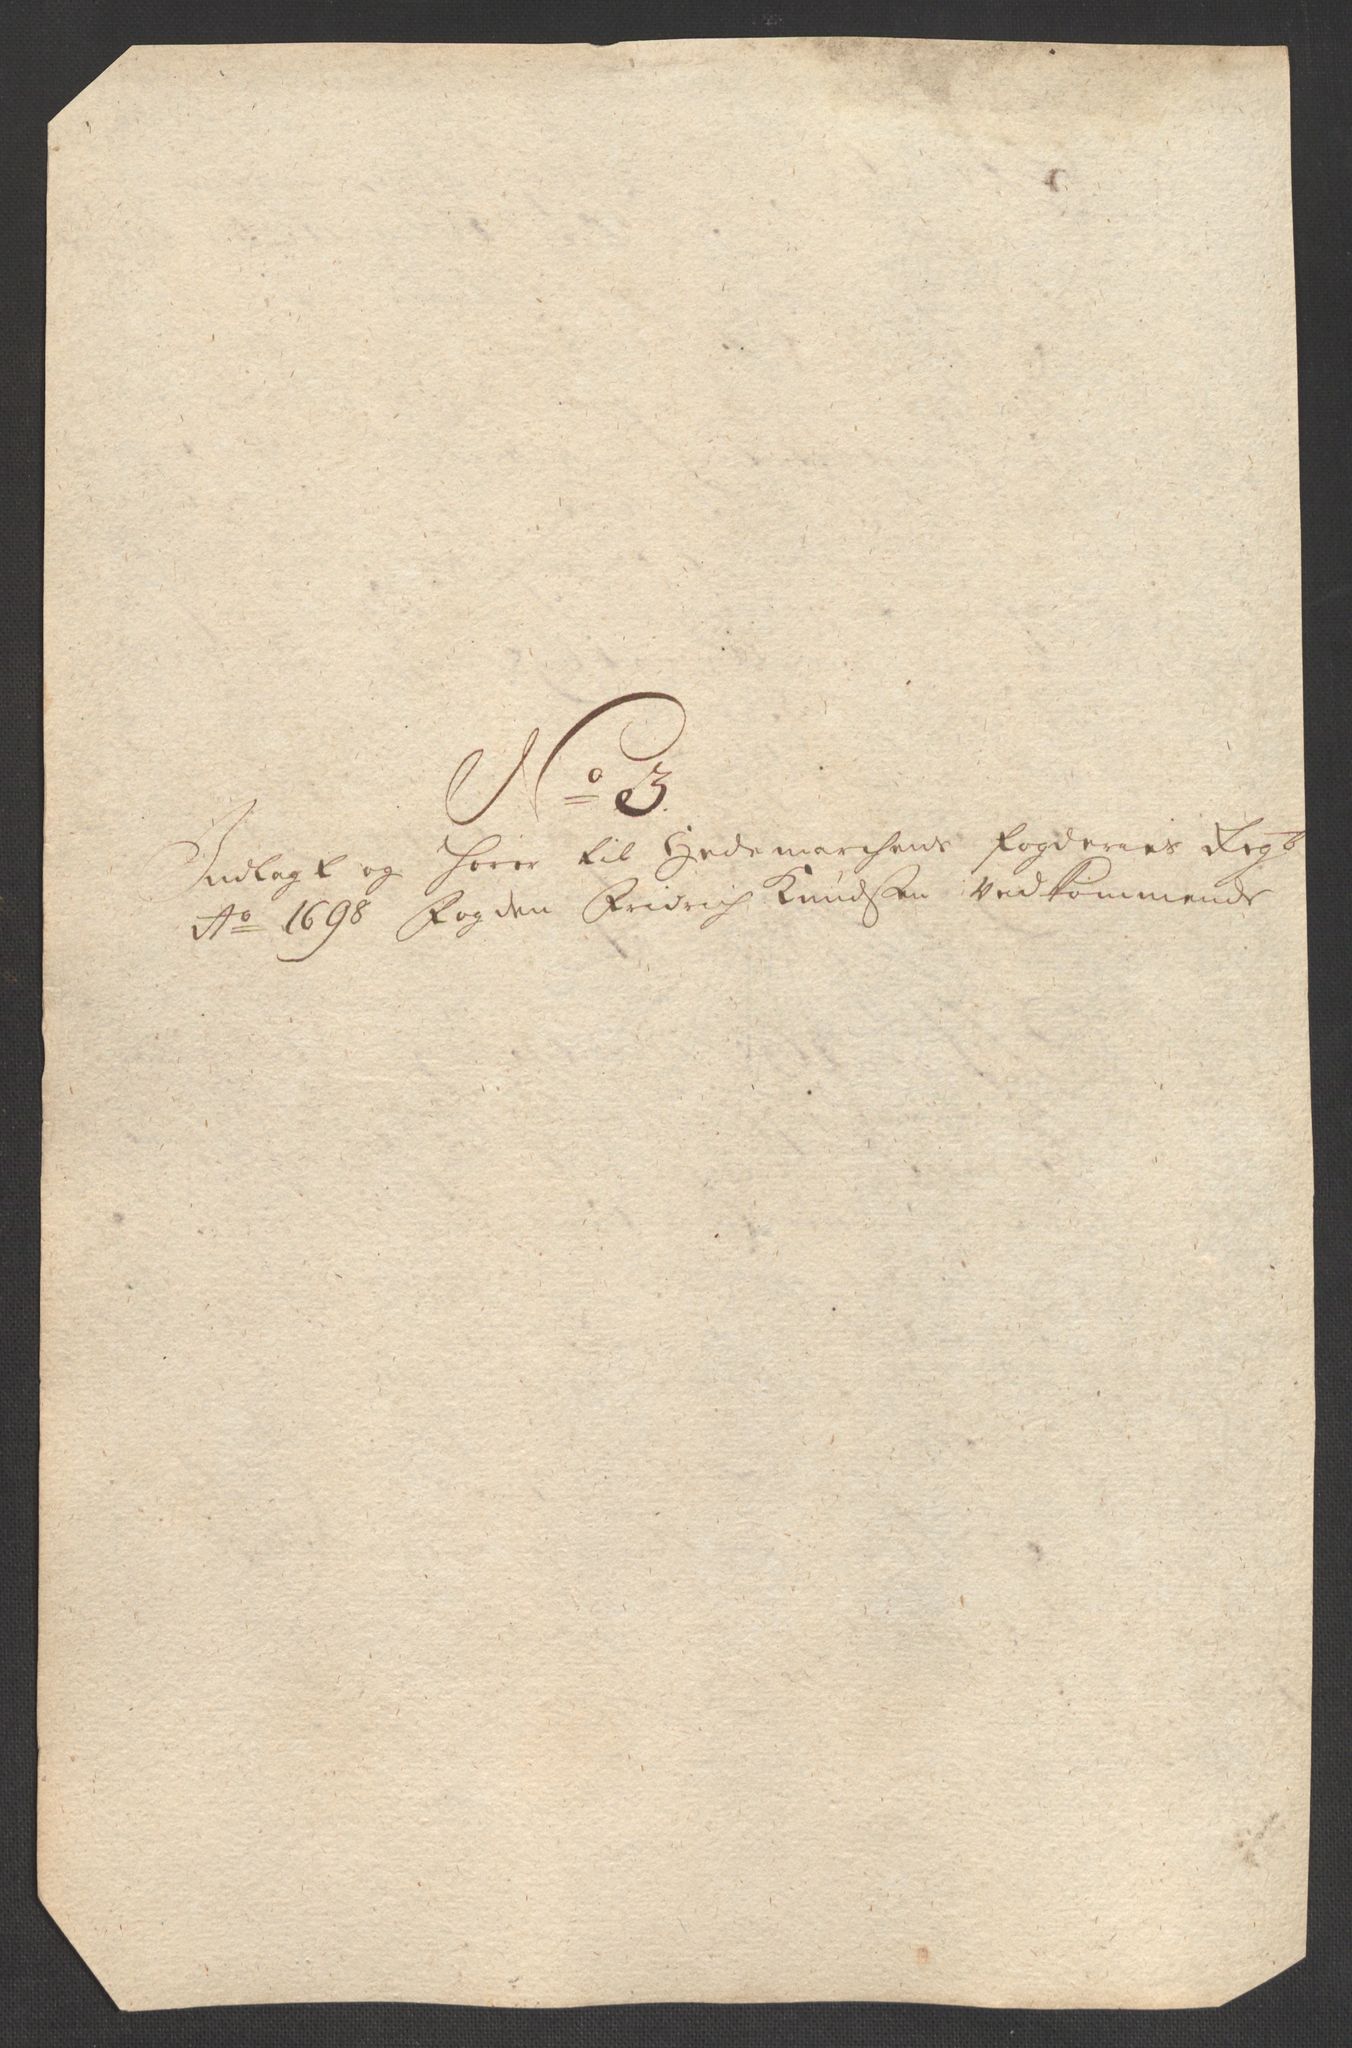 No 3.
Indlagt og hører til Hedemarchens fogderies Regb
Ao 1698 Fogden Fridrich Knudsen Vedkommende